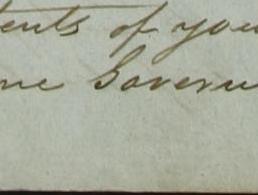 tents of you
me Govern